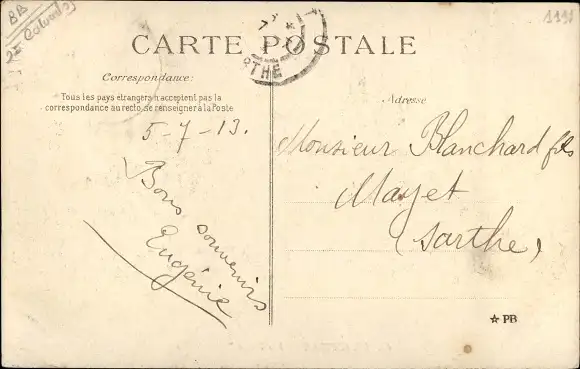 BB
CARTE POSTALE
RTHE
Correspondance:
Tous les pays etrangers n'acceptent pas la
correspondance au recto, se renseigner à la Poste
Adresse
5-7-13.
Bons souvenirs
Eugénie
Monsieur Blanchard fils
Mayet
(Sarthe)
☆ PB